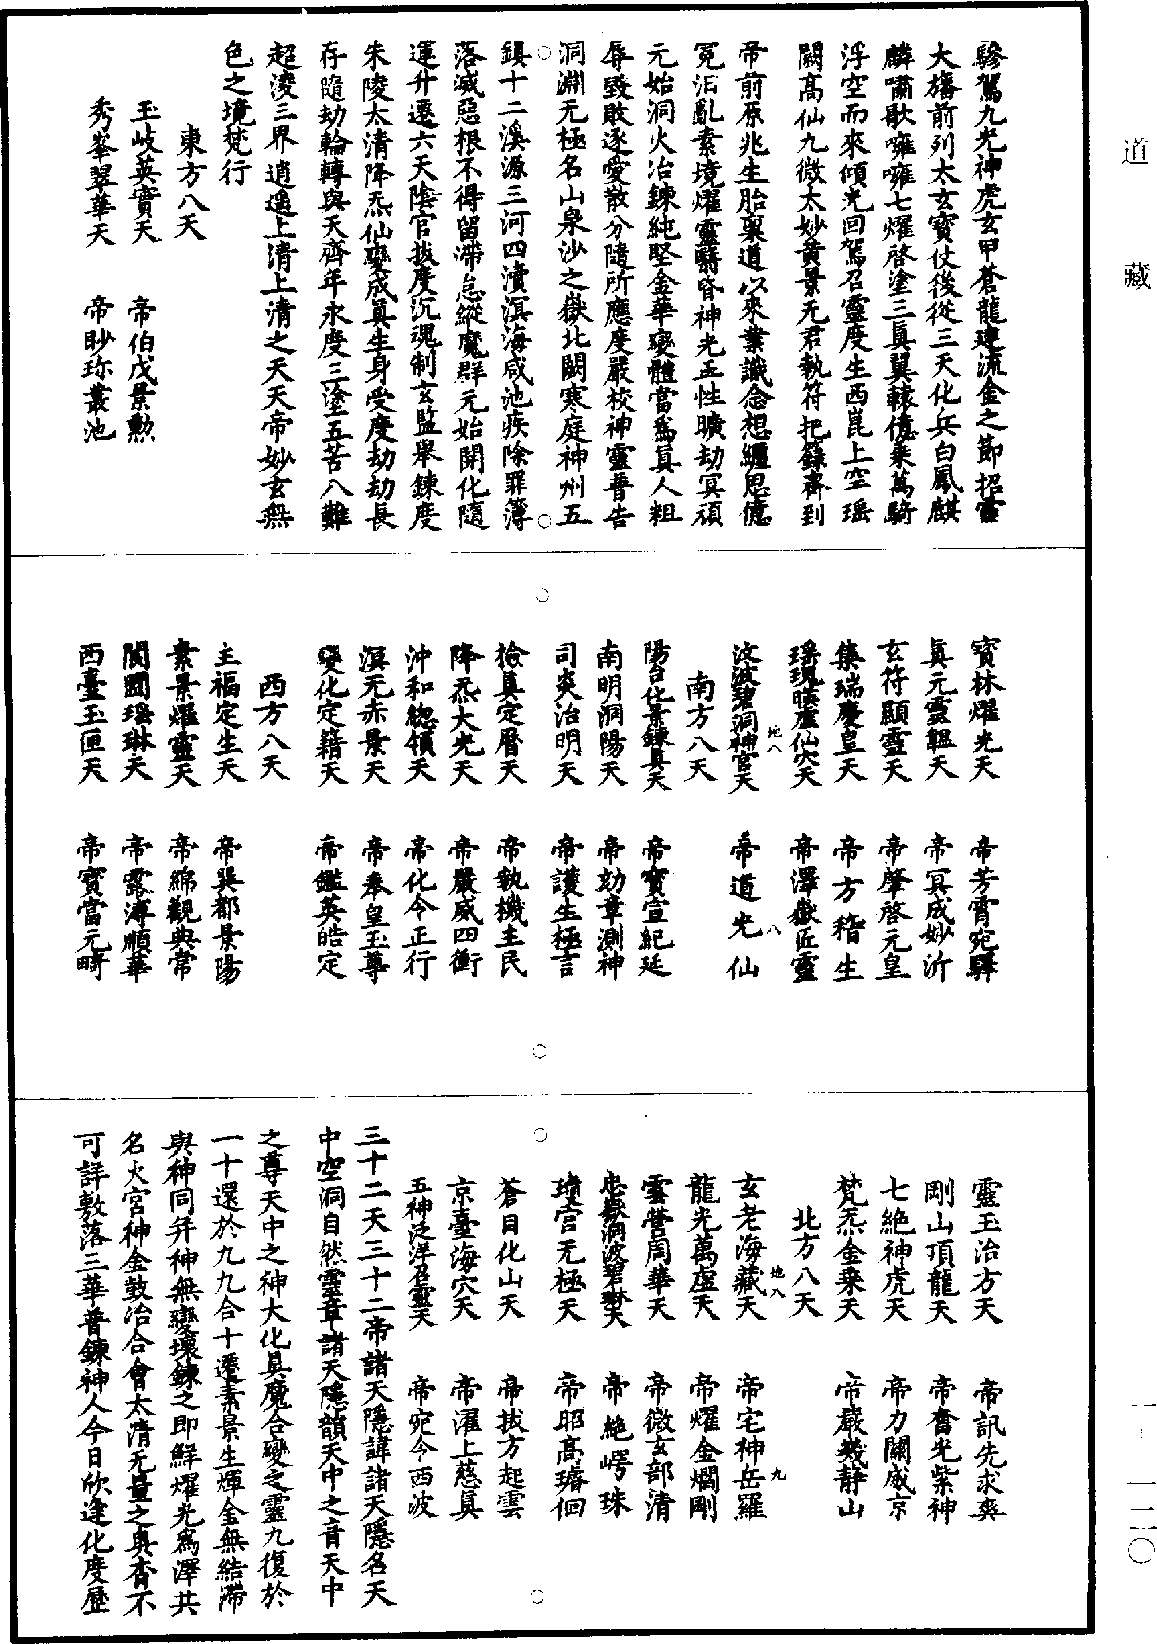 道藏
一一二〇
驂駕九光神虎玄甲蒼龍建流金之節招靈
大旛前列太玄寶仗後從三天化兵白鳳麒
麟嘯歌嗈嗈七燿啓塗三真翼轅億乘萬騎
浮空而來傾光回駕召靈度生西崑上空瑤
闕高仙九微太妙黄景元君執符把籙齊到
帝前原兆生胎稟道以來業識念想纏思億
冤汩亂素境燿靈翳昏神光五性曠劫冥頑
元始洞火冶鍊純堅金華變體當爲真人粗
辱毀敗逐愛散分隨所應度嚴校神靈普告
洞淵无極名山泉沙之嶽北闕寒庭神州五
鎮十二溪源三河四瀆溟海咸池疾除罪簿
落滅惡根不得留滯怠縱魔群元始開化隨
運升遷六天陰官拔度沉魂制玄監舉鍊度
朱陵太清降炁仙變成真生身受度劫劫長
存隨劫輪轉與天齊年永度三塗五苦八難
超凌三界逍遥上清上清之天天帝妙玄無
色之境梵行
東方八天
玉岐英實天 帝伯戊景勲
秀峯翠華天 帝眇珎叢池
寶林燿光天 帝芳霄宛驛
真元靈韞天 帝冥成妙沂
玄符顯靈天 帝肇啓元皇
集瑞慶皇天 帝方稽生
瑤瑰暎虛仙穴天 帝澤嶽匠靈
地八 八
汶波碧洞神宫天 帝道光仙
南方八天
陽台化景鍊真天 帝寶宣紀延
南明洞陽天 帝劾章測神
司炎治明天 帝護生極言
檢真定曆天 帝執機主民
降炁大光天 帝嚴威四衝
沖和總領天 帝化令正行
溟无赤景天 帝奉皇玉尊
變化定籍天 帝鑑英皓定
西方八天
主福定生天 帝巽都景陽
素景燿靈天 帝綿觀典常
閬圃瑤琳天 帝露溥順華
西臺玉匣天 帝寶當元畤
靈玉治方天 帝訊先求爽
剛山頂龍天 帝奮光紫神
七絶神虎天 帝力關威京
梵炁金乘天 帝巖幾靜山
北方八天
地八 九
玄老海藏天 帝宅神岳羅
龍光萬虛天 帝燿金爛剛
雲營周華天 帝微玄部清
忠嶽洞波碧琳天 帝絶崿珠
瓊宫无極天 帝昭高璿佪
蒼目化山天 帝拔方起雲
京臺海穴天 帝濯上慈真
五神泛洋召靈天 帝宛今西波
三十二天三十二帝諸天隱諱諸天隱名天
中空洞自然靈章諸天隱韻天中之音天中
之尊天中之神大化具魔合變之靈九復於
一十還於九九合十遷素景生輝金無結滯
與神同并神無變壞鍊之即鮮燿光爲澤共
名火宫神金鼓冶合會太清无量之奥杳不
可詳敷落三華普鍊神人今日欣逢化度歷